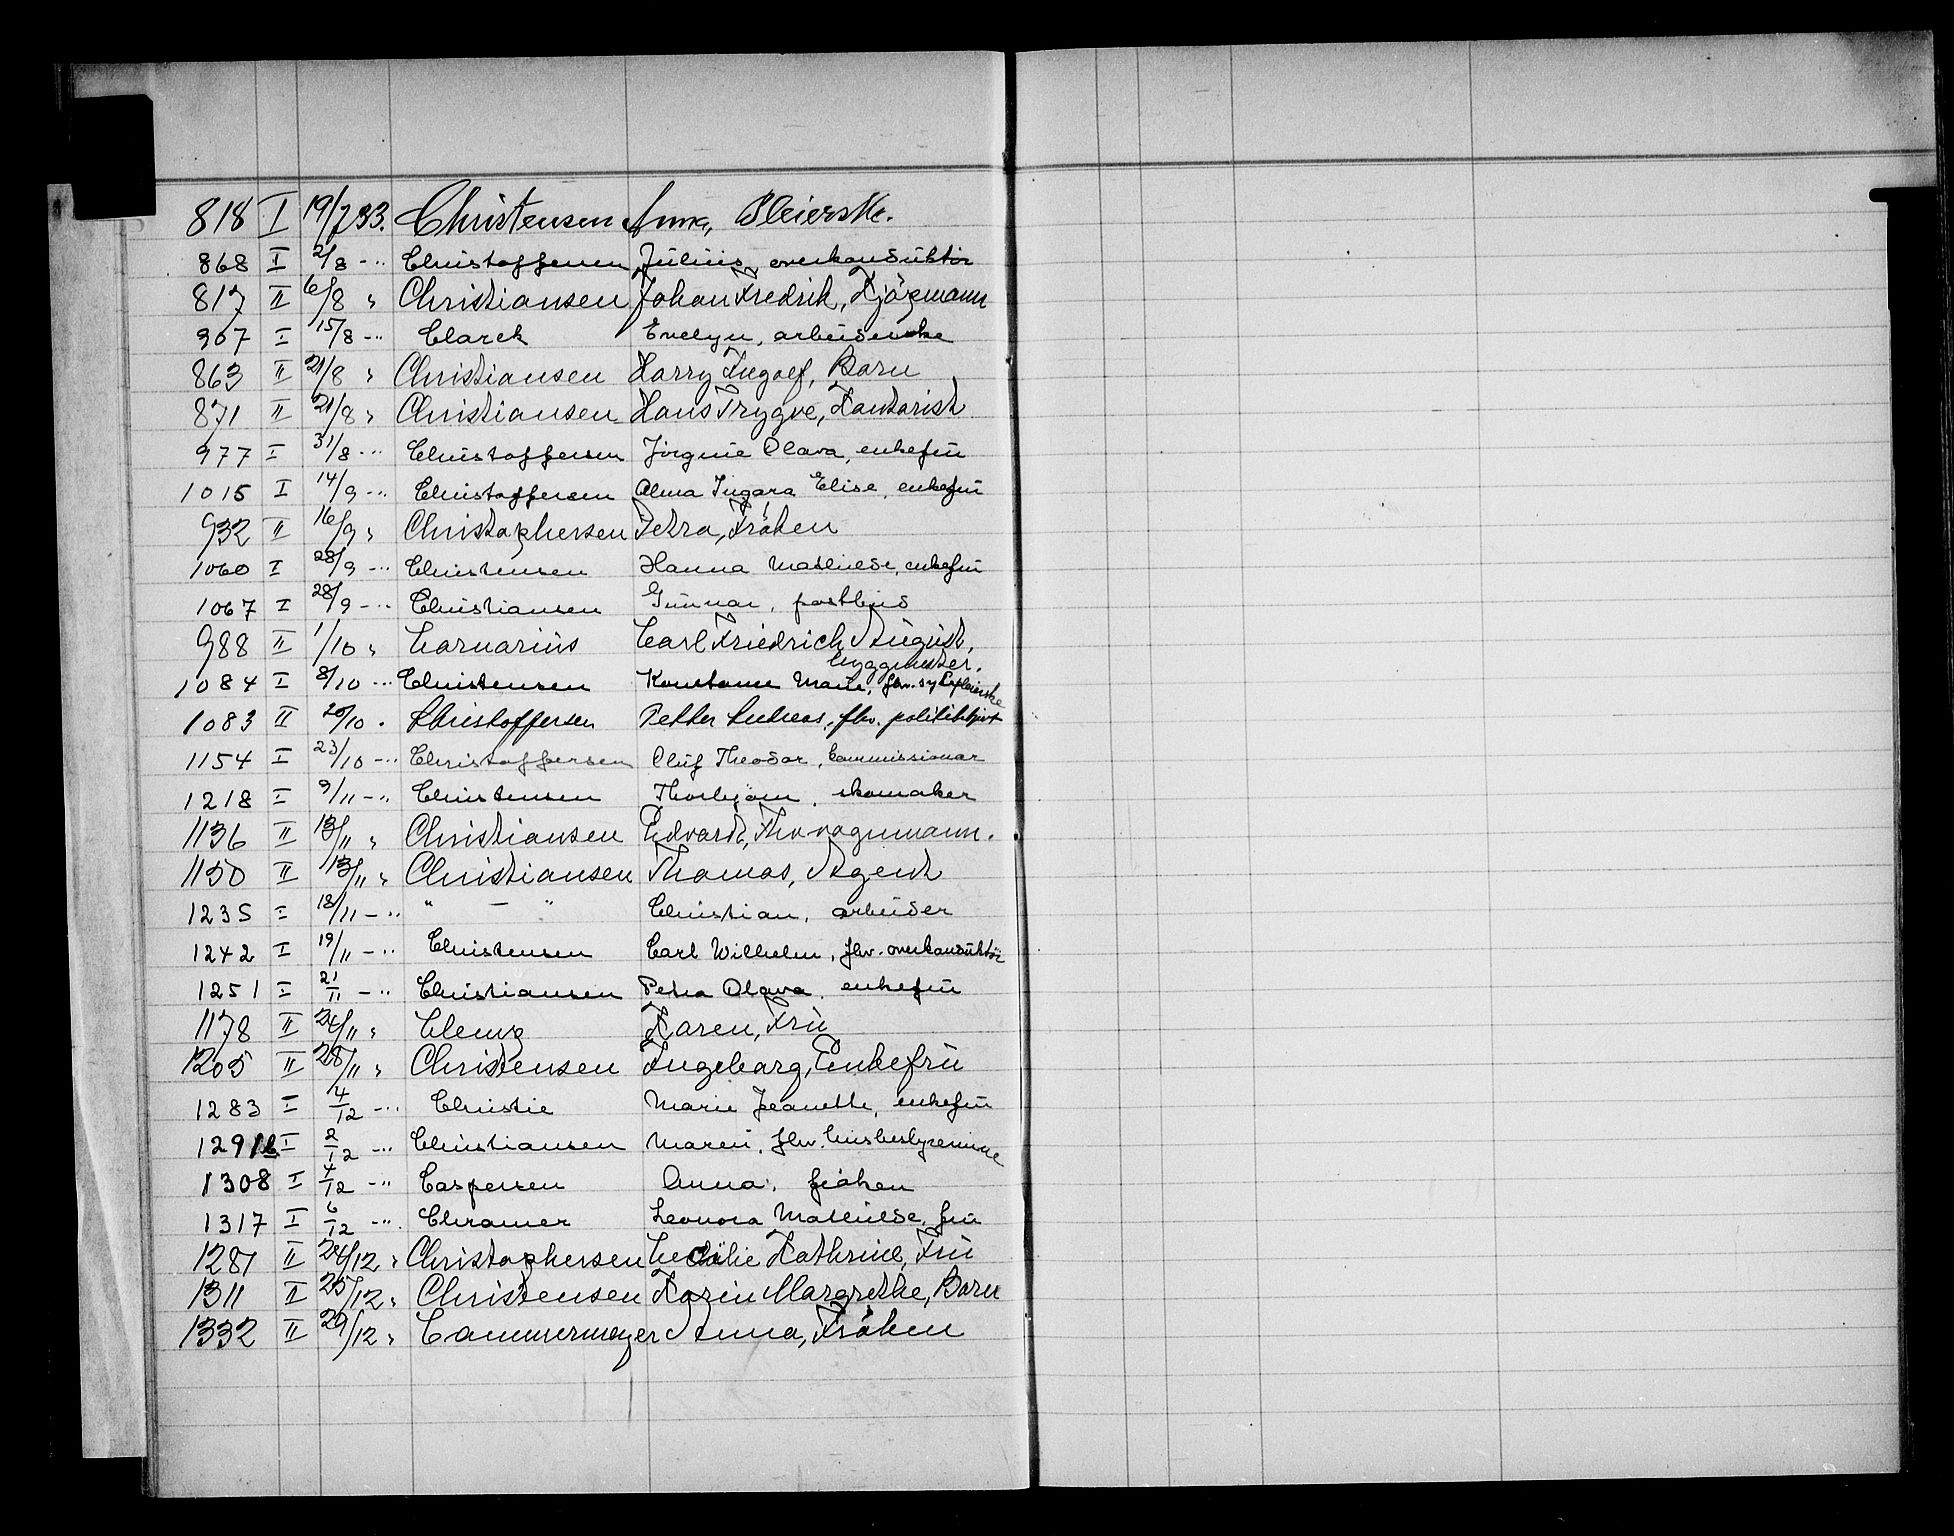 818 I 19/7 33. Christensen Anna, Pleierske.
868 I 2/8 -" Christoffersen Julius, overkonduktör
817 II 6/8 " Christiansen Johan Fredrik, Kjöpmann
907 I 15/8 -" Clarck Evelyn, arbeiderske
863 II 21/8 " Christiansen Harry Ingolf, Barn
871 II 21/8 " Christiansen Hans Trygve, Kontorist
977 I 31/8 -" Christoffersen Jörgine Olava, enkefrü
1015 I 14/9 -" Christoffersen Alma Ingara Elise, enkefrü
932 II 16/9 " Christophersen Petra, Fröken
1060 I 28/9 -" Christensen Hanna Mathilde, enkefrü
1067 I 28/9 -" Christiansen Günnar, postbud
988 II 1/10 " Carnarius Carl Friedrich August,
byggmester.
1084 I 8/10 -" Christensen Konstanse Marie, fhv. sykepleierske
1083 II 20/10 " Christoffersen Petter Andreas, fhv. politibtjent
1154 I 23/10 -" Christoffersen Oluf Theodor, kommissionær
1218 I 9/11 -" Christensen Thorbjørn, skomaker
1136 II 13/11 " Christiansen Edvard, Fhv vognmann.
1150 II 13/11 " Christiansen Thomas, Agent
1235 I 18/11 -" " — " Christian, arbeider
1242 I 19/11 -" Christensen Carl Wilhelm, fhv. overkonduktör
1251 I 21/11 -" Christiansen Petra Olava, enkefrü
1178 II 24/11 " Clemz Karen, Frü
1205 II 28/11 " Christensen Ingeborg, Enkefrü
1283 I 4/12 -" Christie Marie Jeanette, enkefrü
1291b I 2/12 -" Christiansen Maren, fhv. husbestyrerinne
1308 I 4/12 -" Caspersen Anna, fröken
1317 I 6/12 -" Chramer Leonora Mathilde, frü
1281 II 24/12 " Christophersen Cecilie Kathrine, Frü
1311 II 25/12 " Christensen Karin Margrethe, Barn
1332 II 29/12 " Cammermeyer Anna, Fröken